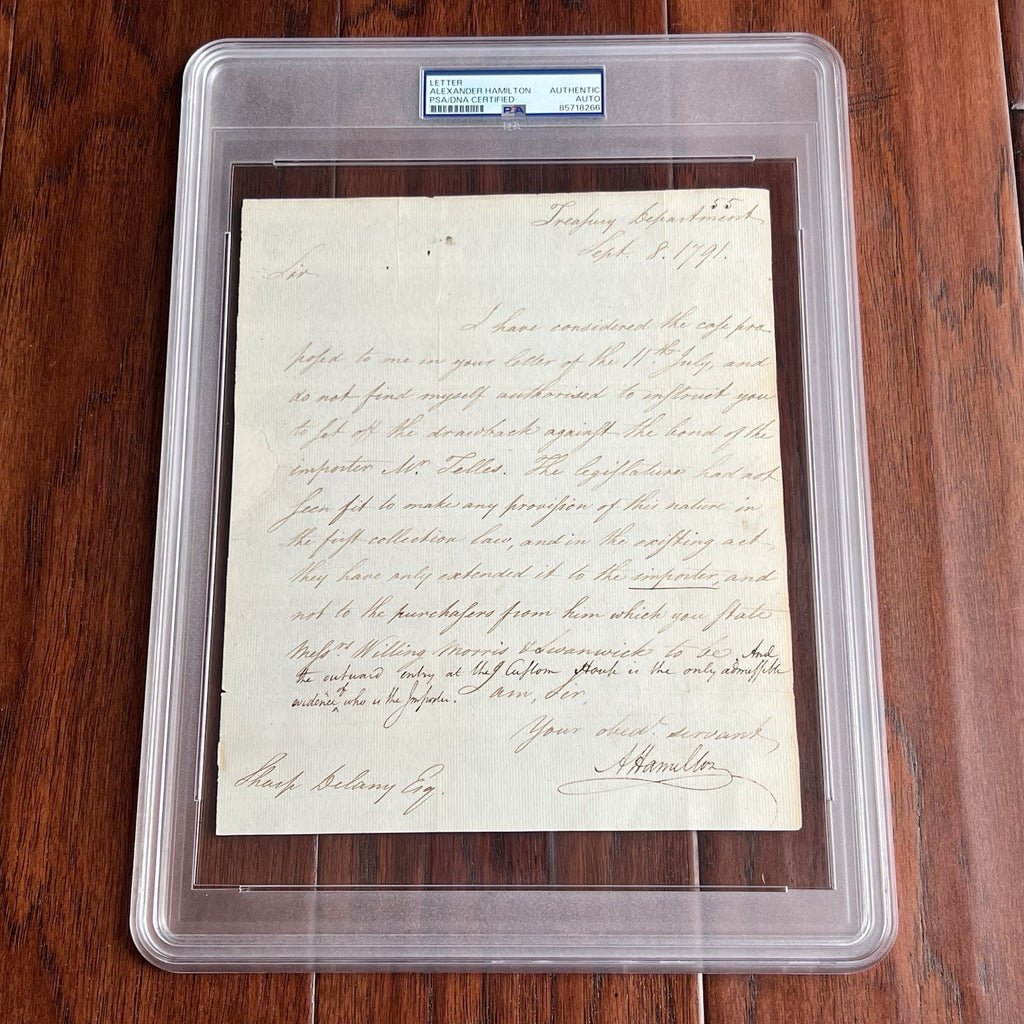 LETTER
ALEXANDER HAMILTON AUTHENTIC
PSA/DNA CERTIFIED AUTO
PSA 85718266
55
Treaſury Department
Sept. 8. 1791.
Sir
I have considered the caſe pro
poſed to me in your letter of the 11th July, and
do not find myself authorised to inſtruct you
to ſet off the drawback againſt the bond of the
importer Mr. Telles. The legiſlature had not
ſeen fit to make any proviſion of this nature in
the firſt collection law, and in the exiſting act
they have only extended it to the importer, and
not to the purchaſers from him which you ſtate
Meſſrs Willing Morris & Swanwick to be. And
the outward entry at the Cuſtom Houſe is the only admiſſible
evidence of who is the Importer. I am, Sir,
Your obedt. servant
AHamilton
Sharp Delany Esq.